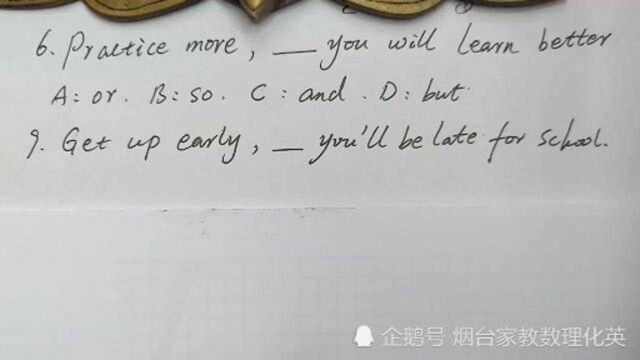 6. Practice more, __ you will learn better
A: or. B: so. C: and. D: but
9. Get up early, __ you'll be late for school.
企鹅号 烟台家教数理化英